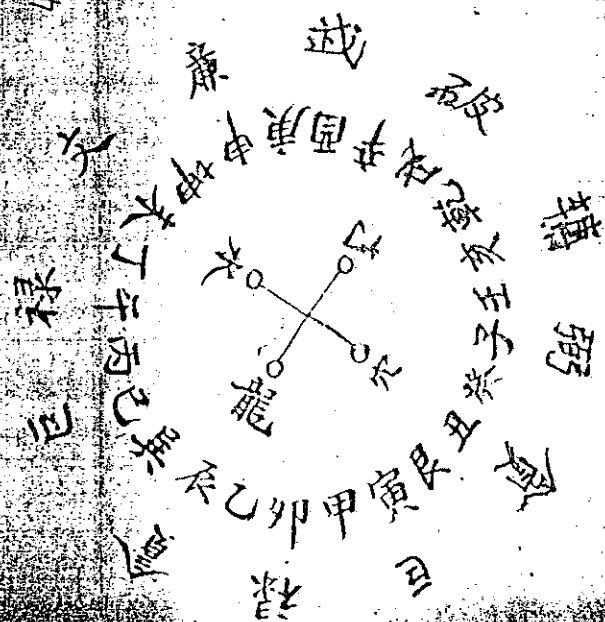 武破輔弼貪巨禄貪巨祿文廉
子癸丑艮寅甲卯乙辰巽巳丙午丁未坤申庚酉辛戌乾亥壬
水
穴
龍